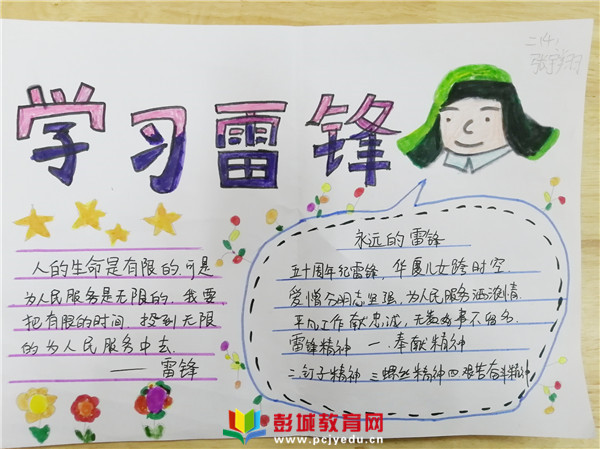 二(4)
学习雷锋
人的生命是有限的，可是
为人民服务是无限的，我要
把有限的时间，投到无限
的为人民服务中去
——雷锋
永远的雷锋
五十周年纪雷锋，华厦儿女跨时空．
爱憎分明志坚强，为人民服务洒激情．
平凡工作献忠诚，无数好事不留名．
雷锋精神 一．奉献精神
二．钉子精神 三螺丝精神 四艰苦奋斗精神
彭城教育网
www.pcjyedu.cn